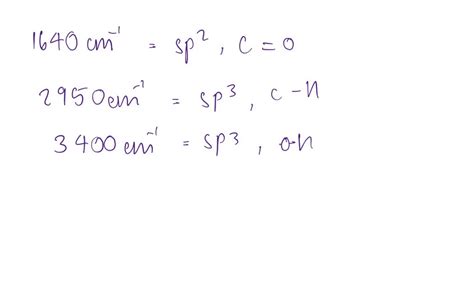 1640 cm⁻¹ = sp², C=O
2950 cm⁻¹ = sp³, C-H
3400 cm⁻¹ = sp³, O-H